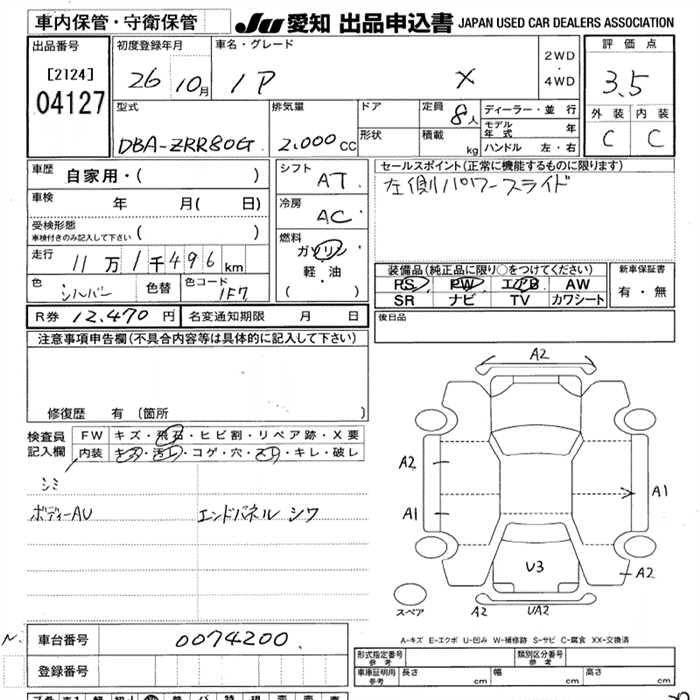 車内保管・守衛保管 JU 愛知 出品申込書 JAPAN USED CAR DEALERS ASSOCIATION
出品番号 初度登録年月 車名・グレード 2WD・4WD 評価点
[2124] 26 10月 1P X 3.5
04127
型式 排気量 ドア 定員 8人 ディーラー・並行 外装 内装
モデル年式 年
DBA-ZRR80G 2,000cc 形状 積載 kg ハンドル 左・右 C C
車歴 自家用・( ) シフト AT セールスポイント(正常に機能するものに限ります)
左側パワースライド
車検 年 月( 日) 冷房 AC
受検形態 ( )
車検付きのみ記入して下さい
燃料 ガソリン・軽・油 ( )
走行 11万1千496km
装備品(純正品に限り○をつけてください) 新車保証書
色 シルバー 色替 色コード 1F7 PS PW エアB AW 有・無
SR ナビ TV カワシート
R券 12,470円 名変通知期限 月 日 後日品
注意事項申告欄(不具合内容等は具体的に記入して下さい)
修復歴 有 〔箇所 〕
検査員記入欄 FW キズ・飛石・ヒビ割・リペア跡・X要
内装 キズ・汚レ・コゲ・穴・スレ・キレ・破レ
シミ
ボディーAU エンドパネル シワ
A2
A2 A1
A1
U3 A2
スペア A2 UA2
A-キズ E-エクボ U-凹み W-補修跡 S-サビ C-腐食 XX-交換済
車台番号 0074200
形式指定番号 参考 類別区分番号 参考
登録番号 車庫証明用 参考 長さ cm 幅 cm 高さ cm